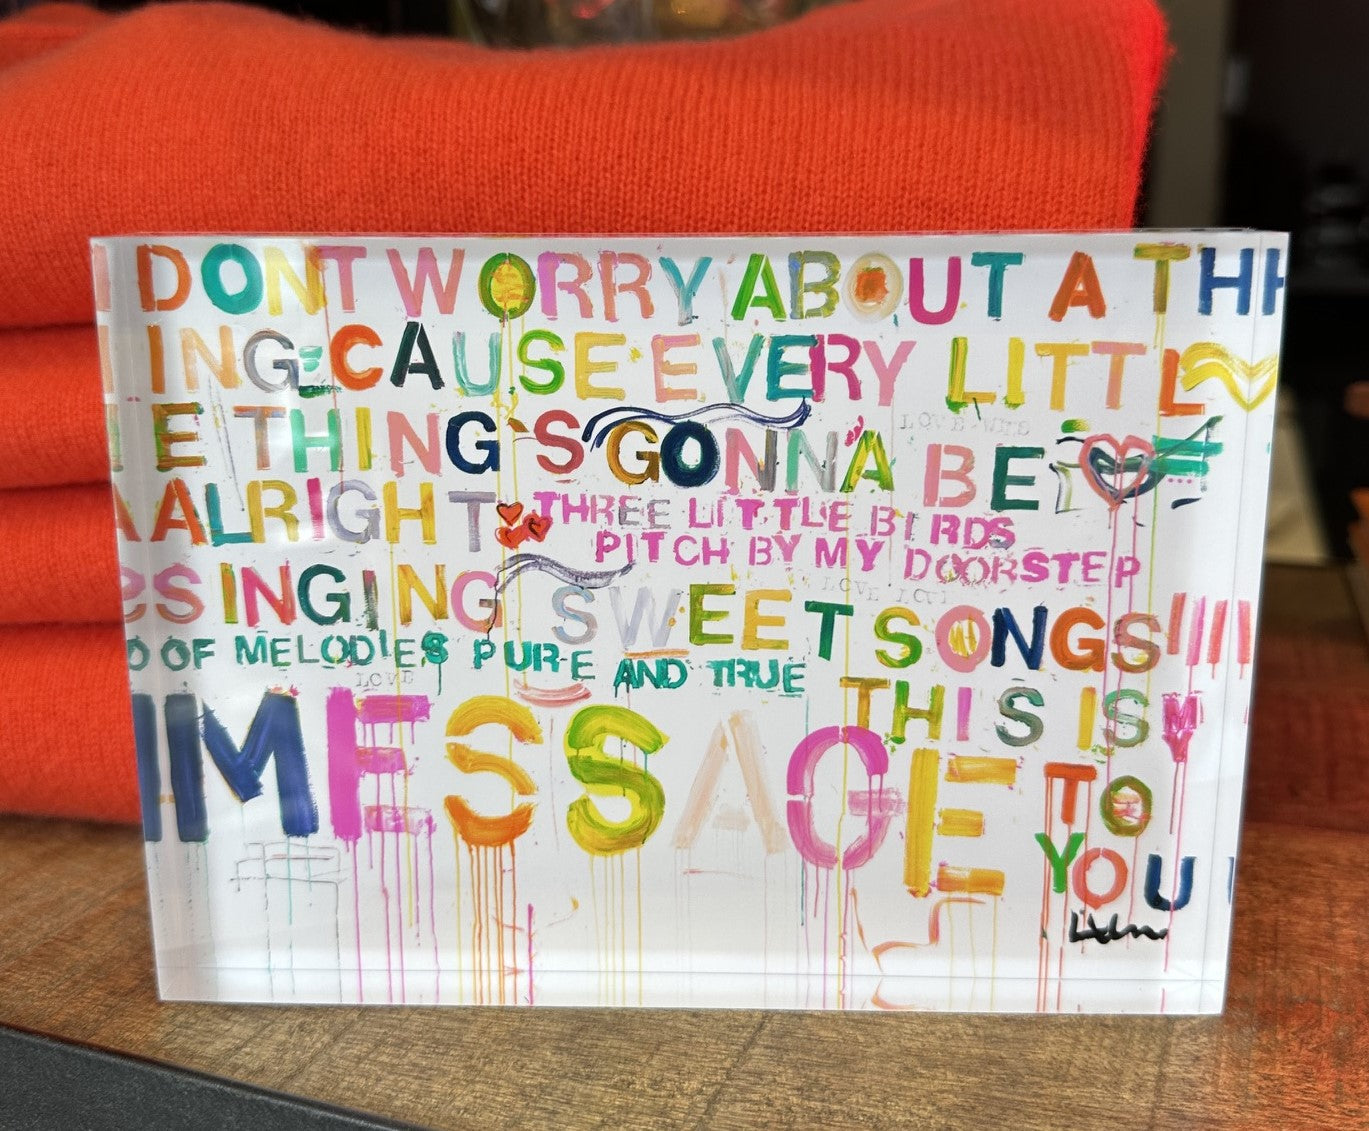 DONT WORRY ABOUT A TH
ING, CAUSE EVERY LITTL
E THING'S GONNA BE
ALRIGHT
THREE LITTLE BIRDS
PITCH BY MY DOORSTEP
SINGING SWEET SONGS
OF MELODIES PURE AND TRUE
LOVE
THIS IS M
MESSAGE TO
YOU